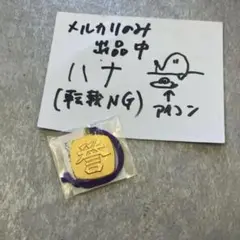 メルカリのみ
出品中
ハナ
(転載NG)
アイコン
誉